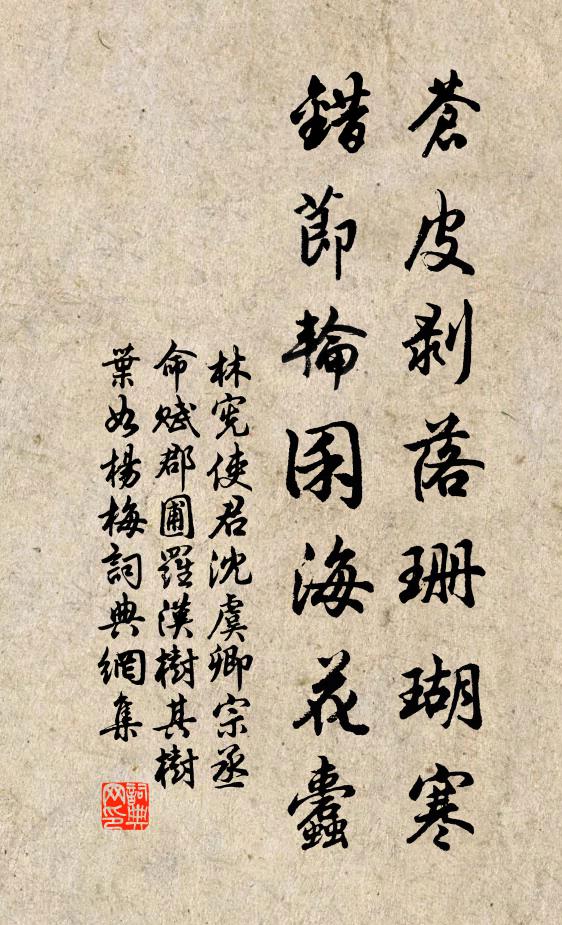 蒼皮剥落珊瑚寒
錯節輪囷海花蠹
林宪使君沈虞卿宗丞
命賦郡圃羅漢樹其樹
葉如楊梅詞典網集
詞典网印